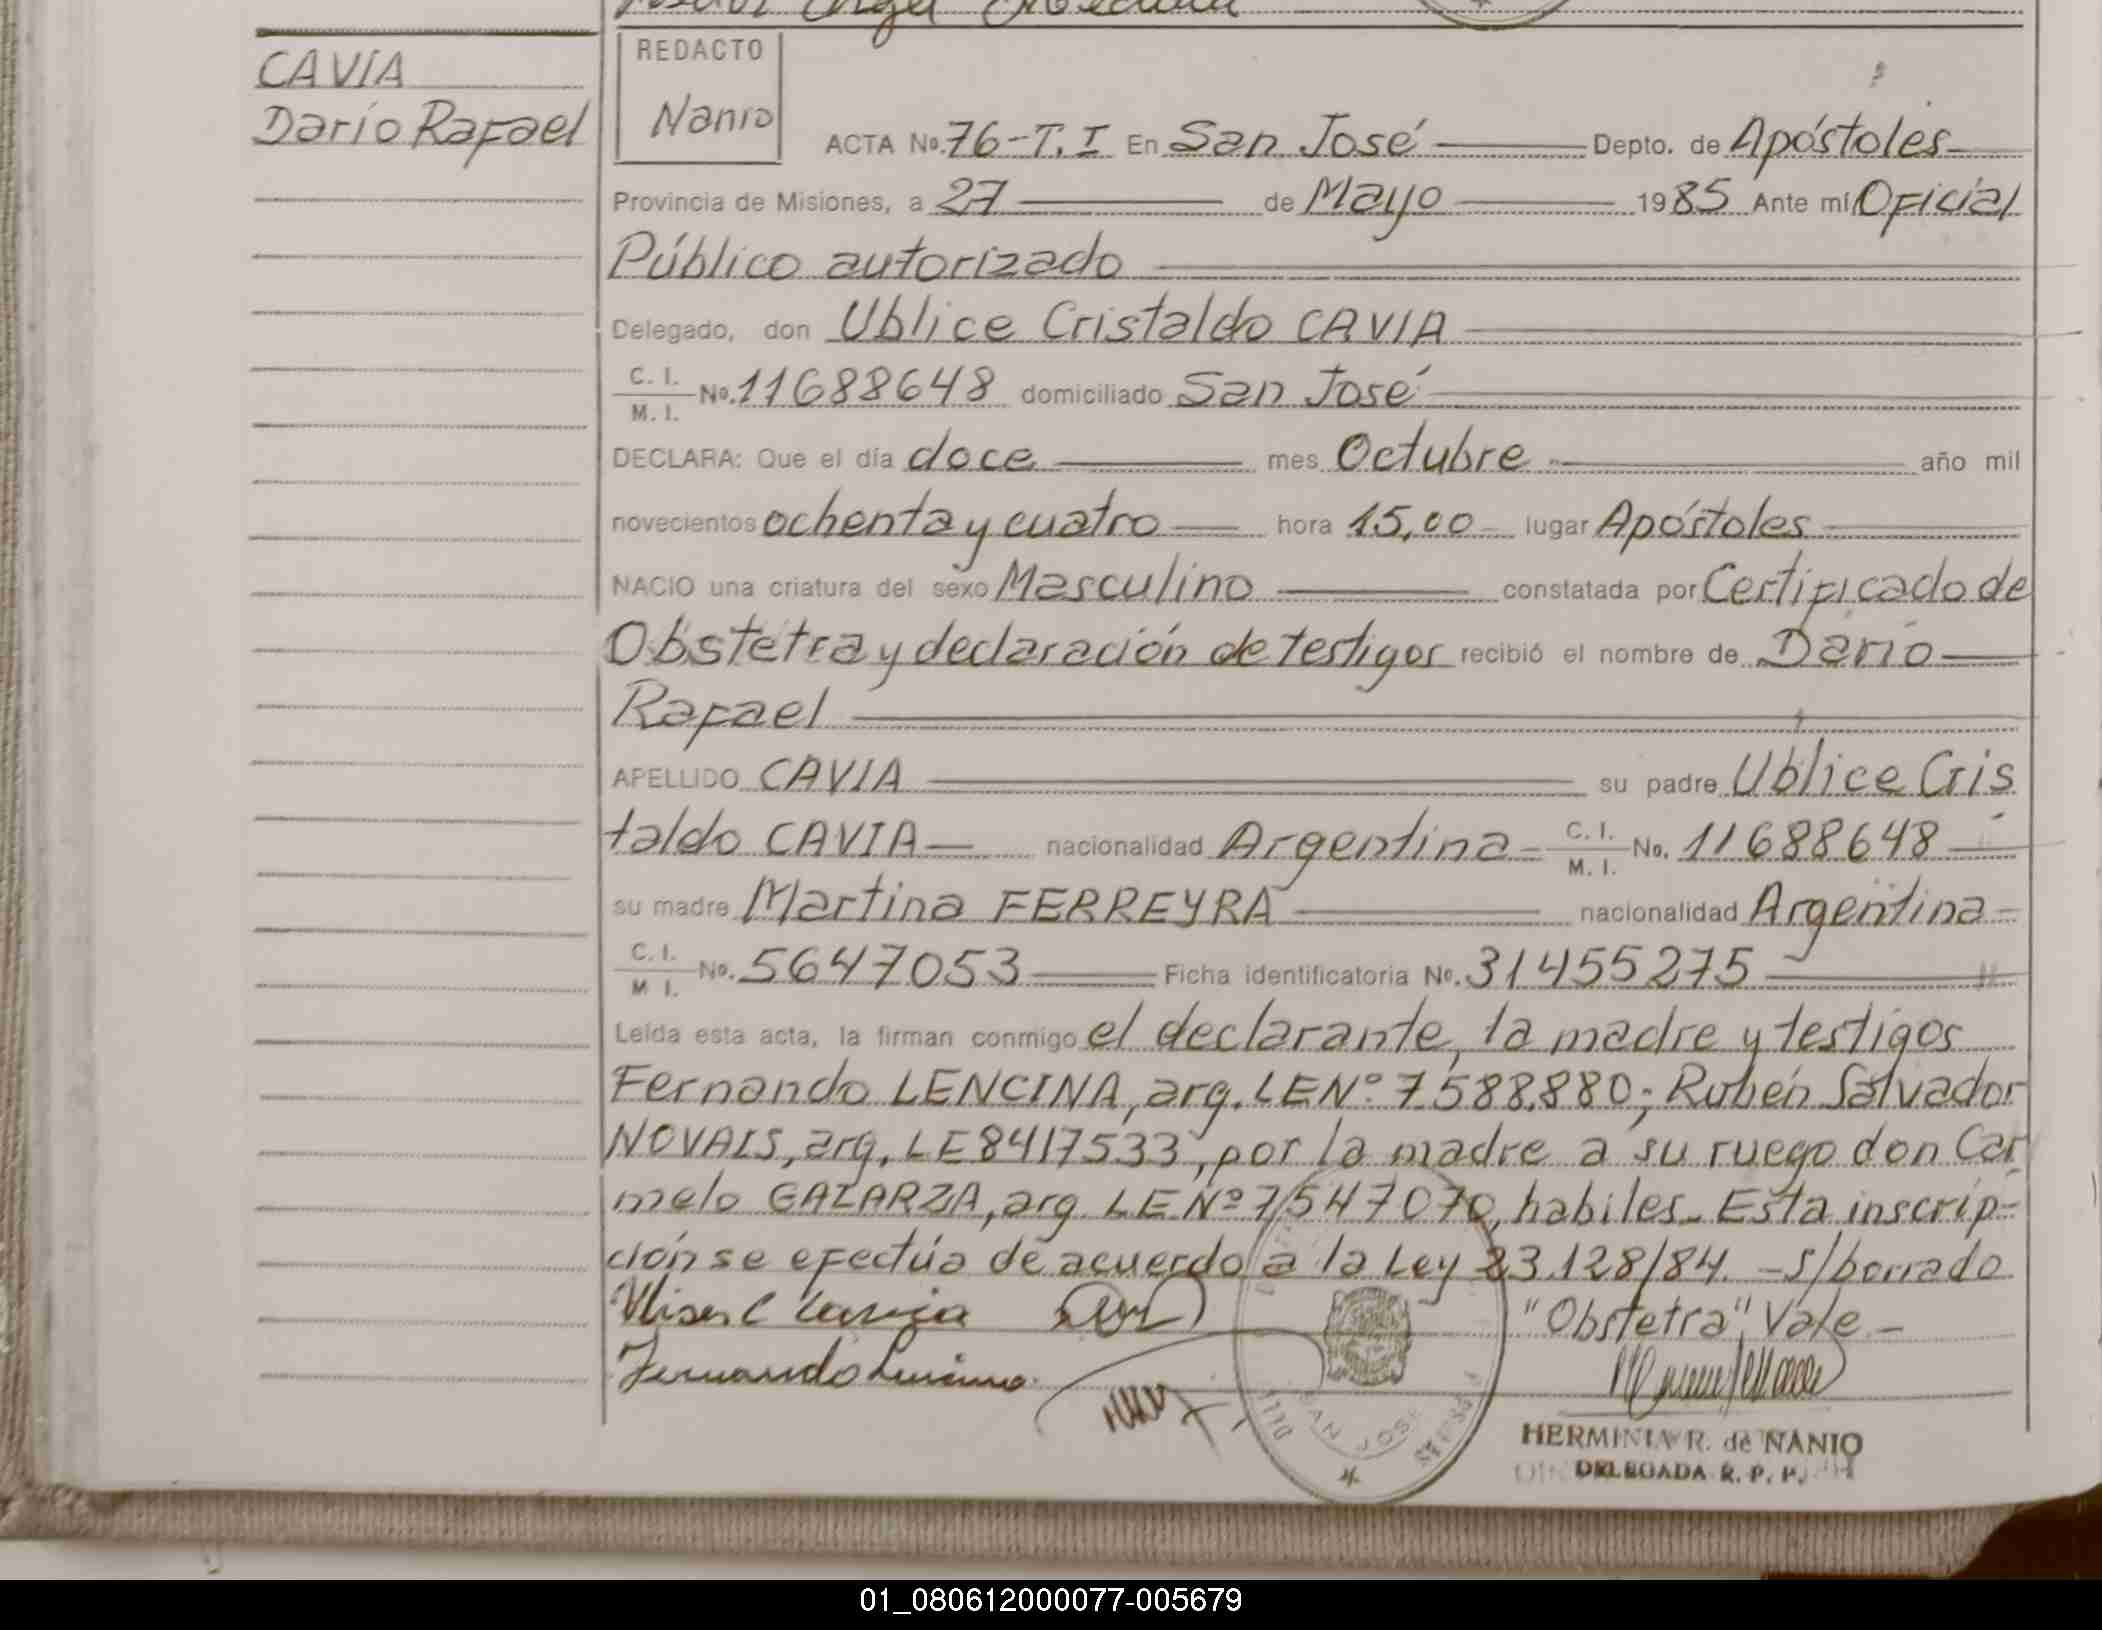 CAVIA
Darío Rafael
REDACTO
Nanio
ACTA No. 76-T.I En San José Depto. de Apóstoles
Provincia de Misiones, a 27 de Mayo 1985 Ante mí Oficial
Público autorizado
Delegado, don Ublice Cristaldo CAVIA
C. I. / M. I. No. 11688648 domiciliado San José
DECLARA: Que el día doce mes Octubre año mil
novecientos ochenta y cuatro hora 15,00 lugar Apóstoles
NACIO una criatura del sexo Masculino constatada por Certificado de
Obstetra y declaración de testigos recibió el nombre de Darío
Rafael
APELLIDO CAVIA su padre Ublice Cris
taldo CAVIA nacionalidad Argentina C. I. / M. I. No. 11688648
su madre Martina FERREYRA nacionalidad Argentina
C. I. / M I. No. 5647053 Ficha identificatoria No. 31455275
Leída esta acta, la firman conmigo el declarante, la madre y testigos
Fernando LENCINA, arg. LE Nº 7588.880; Rubén Salvador
NOVAIS, arg. LE 8417533, por la madre a su ruego don Car
melo GALARZA, arg LE Nº 7547070, habiles. Esta inscrip-
ción se efectúa de acuerdo a la Ley 23.128/84. -s/borrado
"Obstetra", Vale -
Fernando Lencina
SAN JOSE
HERMINIA R. de NANIO
DELEGADA R. P. P.
01_080612000077-005679